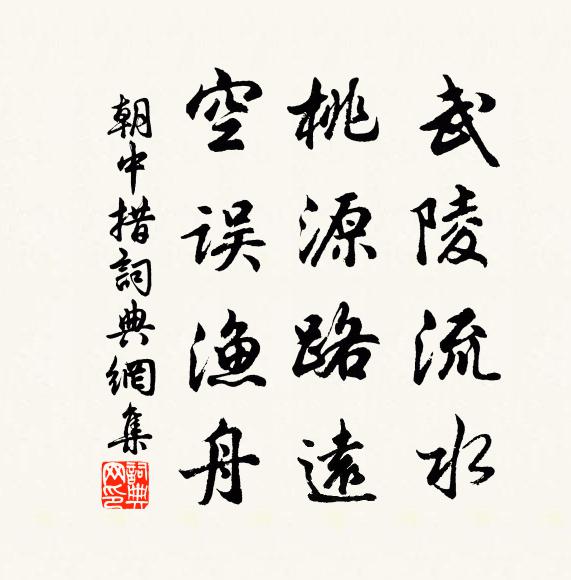 武陵流水
桃源路遠
空误渔舟
朝中措詞典網集
詞典
网印